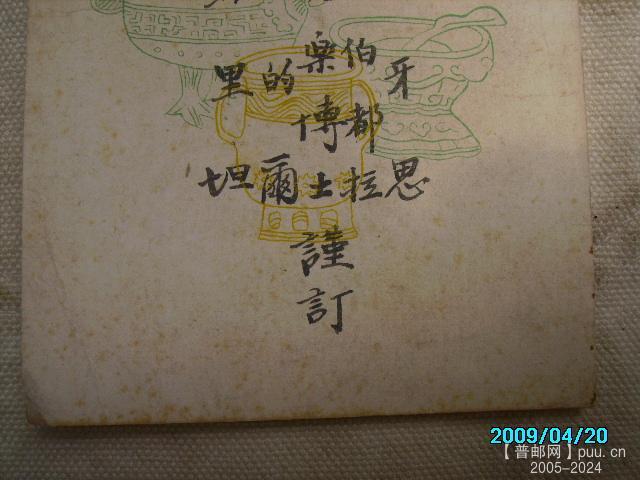 牙思
伯都拉
楽博士
的爾
里坦
謹訂
2009/04/20
【普邮网】puu.cn
2005-2024